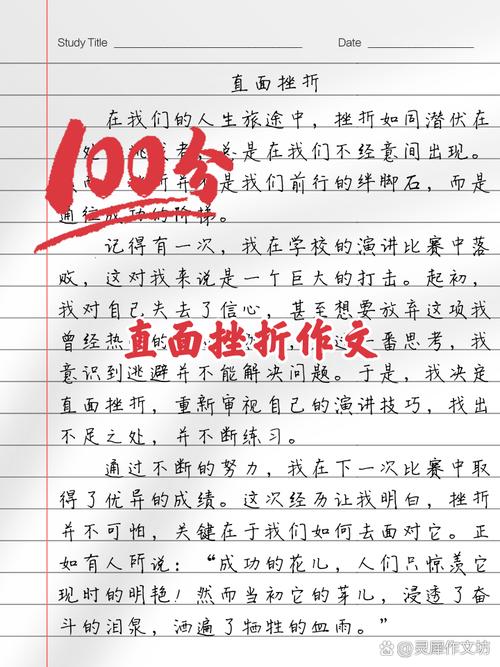 Study Title Date
直面挫折
在我们的人生旅途中，挫折如同潜伏在
处 者，总是在我们不经意间出现。
折并 是我们前行的绊脚石，而是
通往成功的阶梯。
100分
记得有一次，我在学校的演讲比赛中落
败，这对我来说是一个巨大的打击。起初，
我对自己失去了信心，甚至想要放弃这项我
曾经热 的 一番思考，我
直面挫折作文
意识到逃避并不能解决问题。于是，我决定
直面挫折，重新审视自己的演讲技巧，找出
不足之处，并不断练习。
通过不断的努力，我在下一次比赛中取
得了优异的成绩。这次经历让我明白，挫折
并不可怕，关键在于我们如何去面对它。正
如有人所说：“成功的花儿，人们只惊羡它
现时的明艳！然而当初它的芽儿，浸透了奋
斗的泪泉，洒遍了牺牲的血雨。”
灵犀作文坊